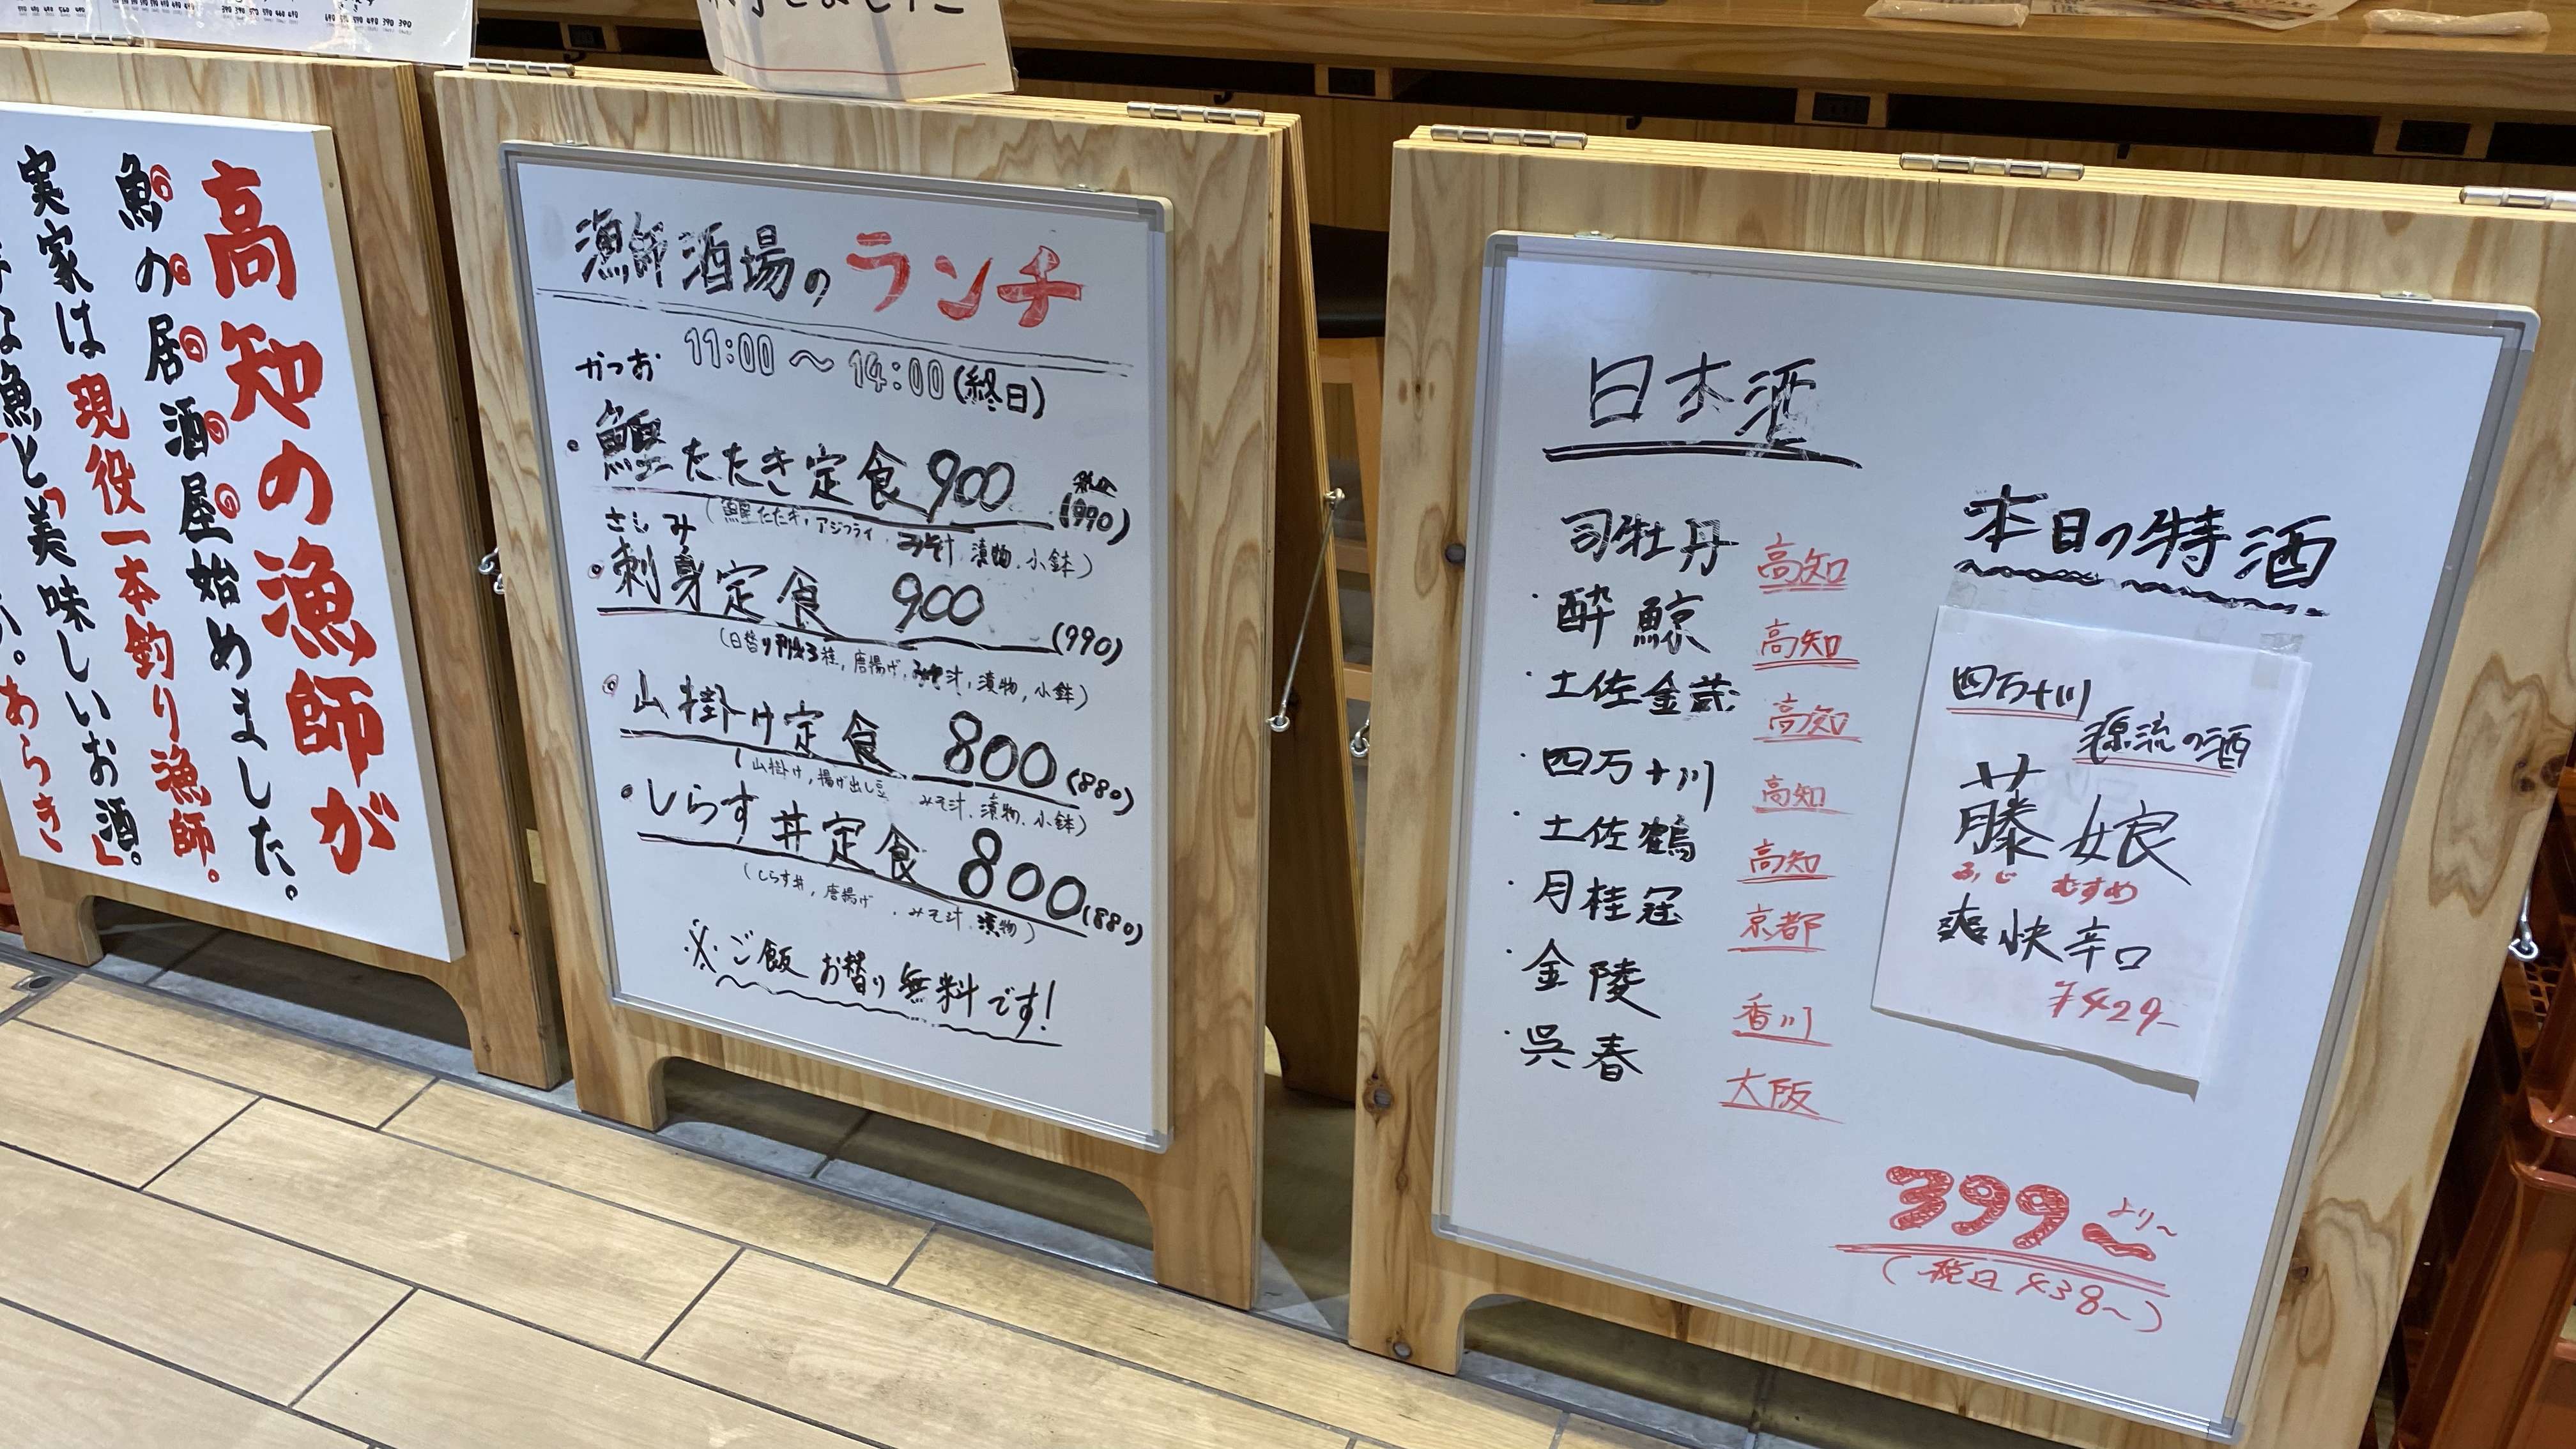 高知の漁師が
魚の居酒屋始めました。
実家は現役一本釣り漁師。
魚と「美味しいお酒。」
あらき
漁師酒場のランチ
11:00～14:00(終日)
かつお
・鰹たたき定食 900 税込(990)
(鰹たたき, アジフライ, みそ汁, 漬物, 小鉢)
さしみ
・刺身定食 900 (990)
(日替り刺身3種, 唐揚げ, みそ汁, 漬物, 小鉢)
・山掛け定食 800 (880)
(山掛け, 揚げ出し豆 みそ汁, 漬物, 小鉢)
・しらす丼定食 800 (880)
(しらす丼, 唐揚げ, みそ汁, 漬物)
※ご飯お替り無料です!
日本酒
司牡丹 高知
・酔鯨 高知
・土佐金蔵 高知
・四万十川 高知
・土佐鶴 高知
・月桂冠 京都
・金陵 香川
・呉春 大阪
本日の特酒
四万十川
源流の酒
藤娘
ふじ むすめ
爽快辛口
¥429-
399- より～
(税込 438～)